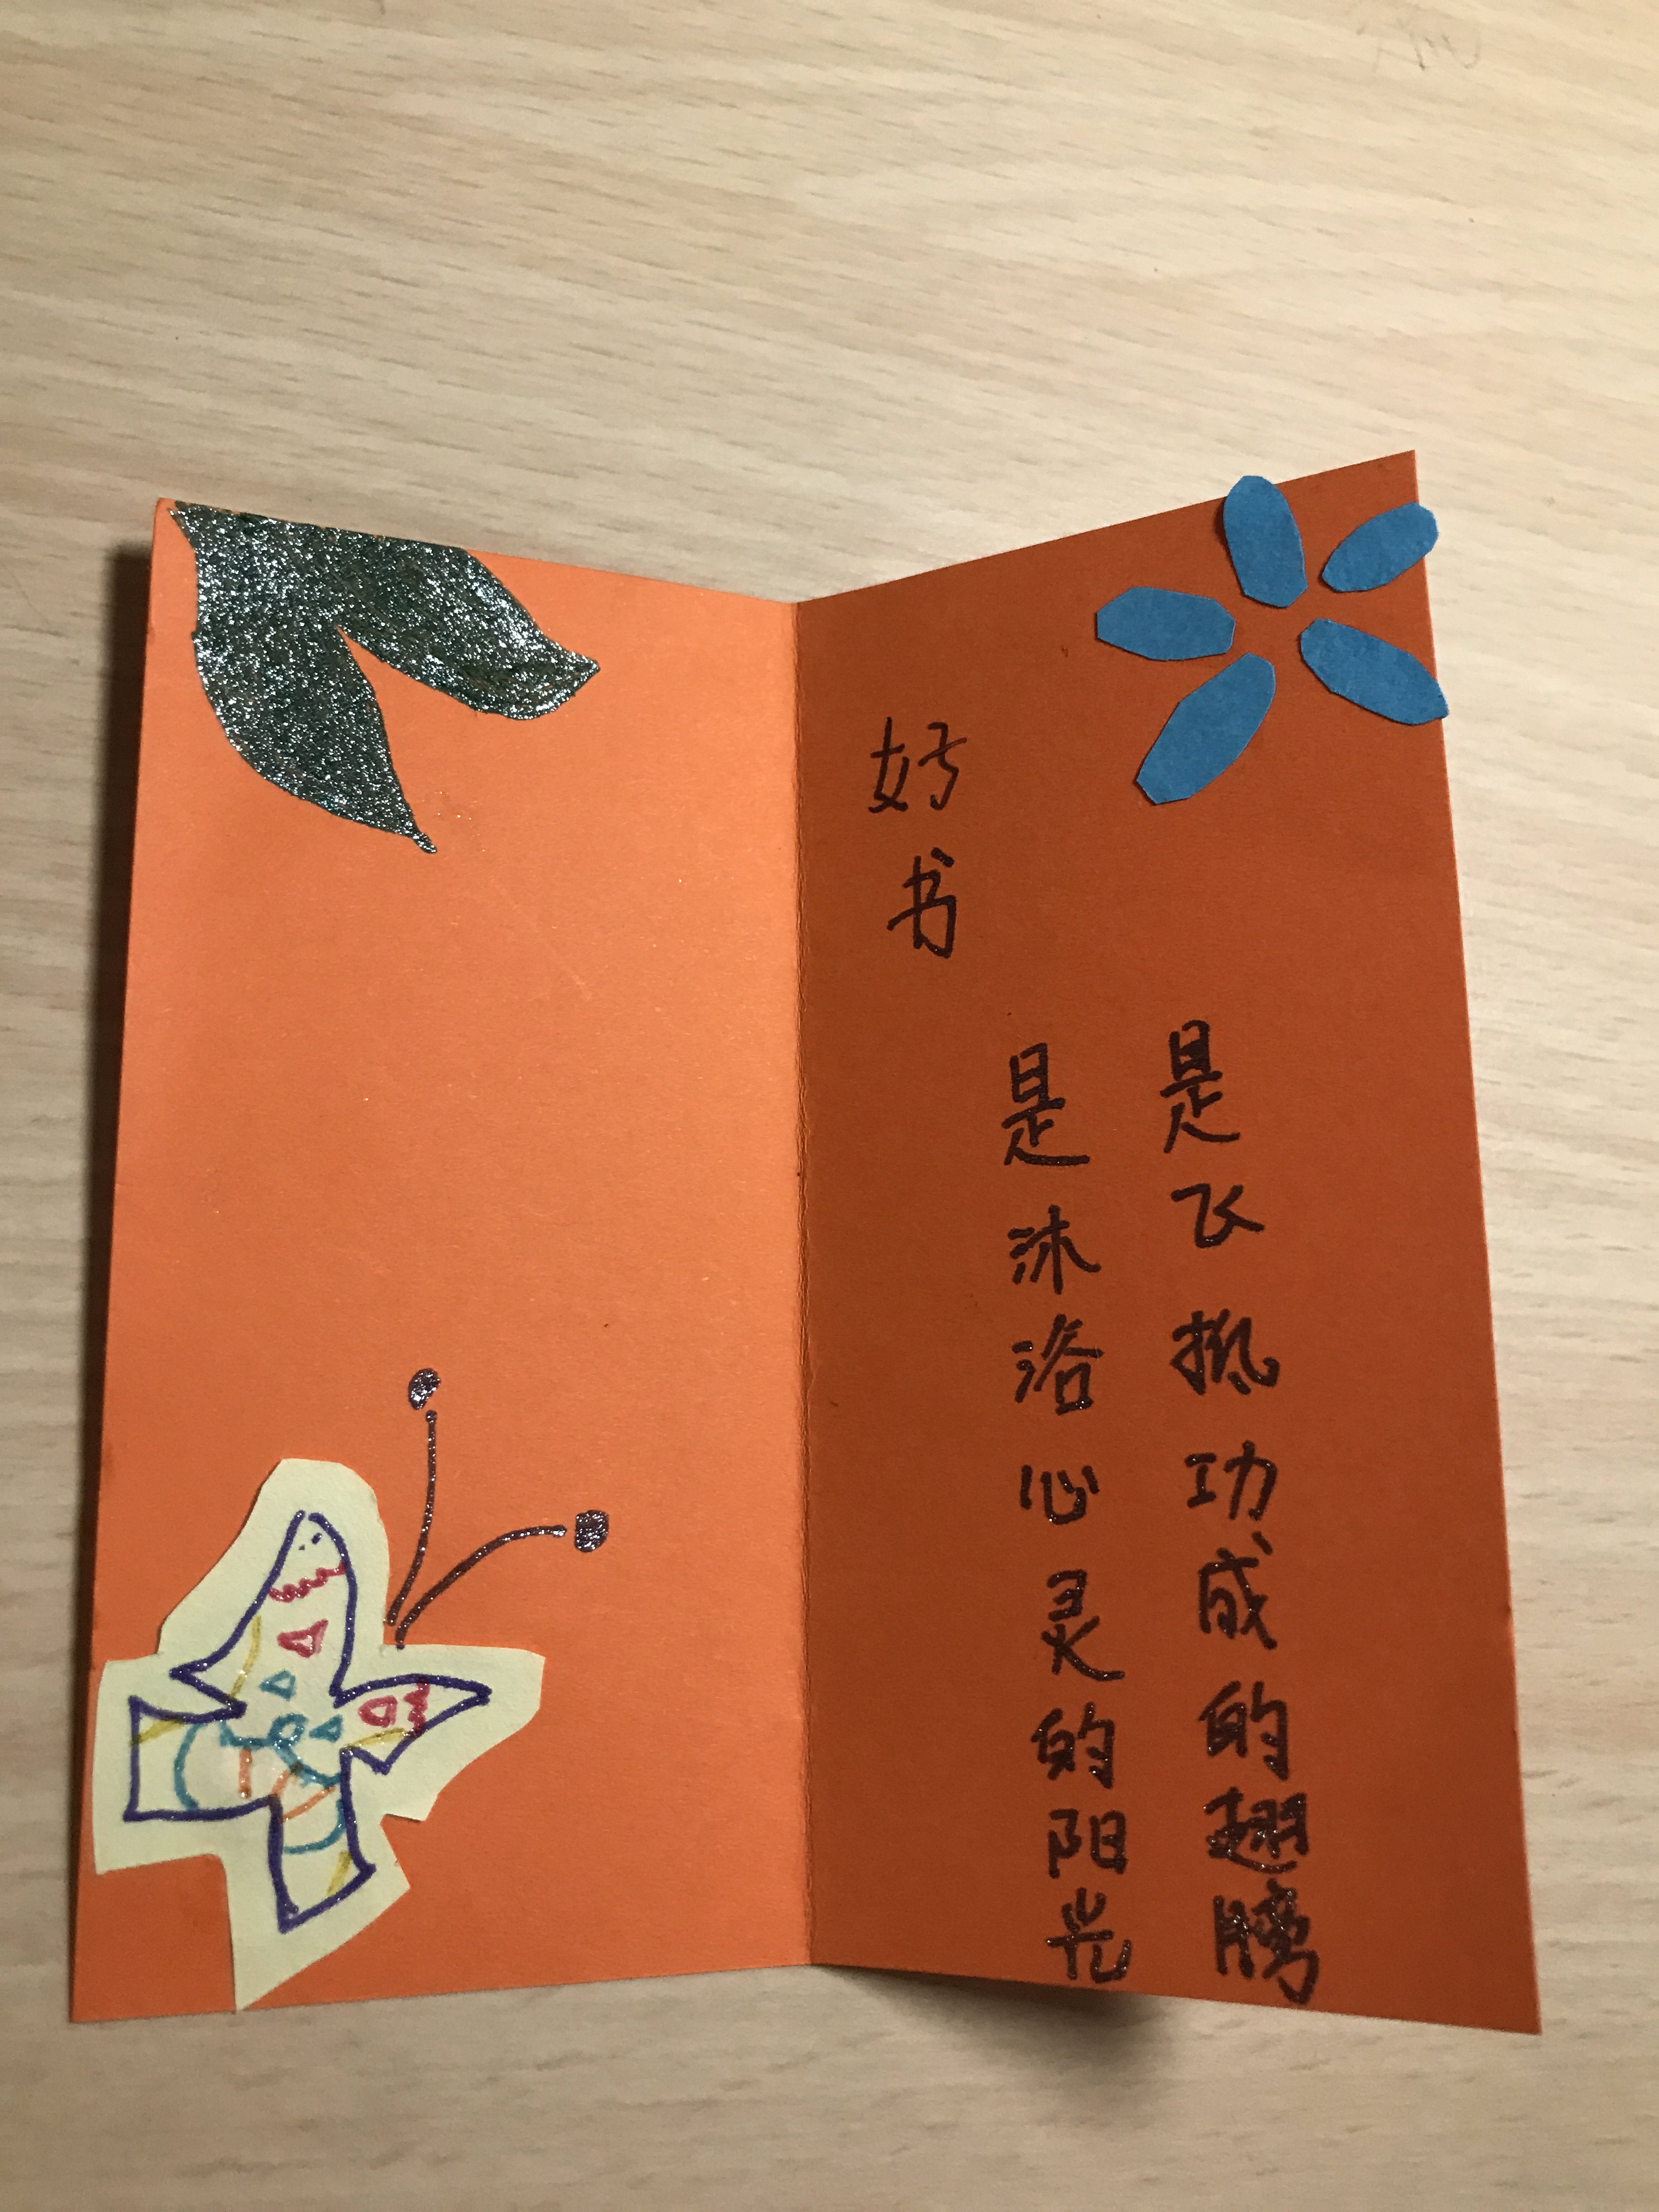 好书
是沐浴心灵的阳光
是飞功成的翅膀